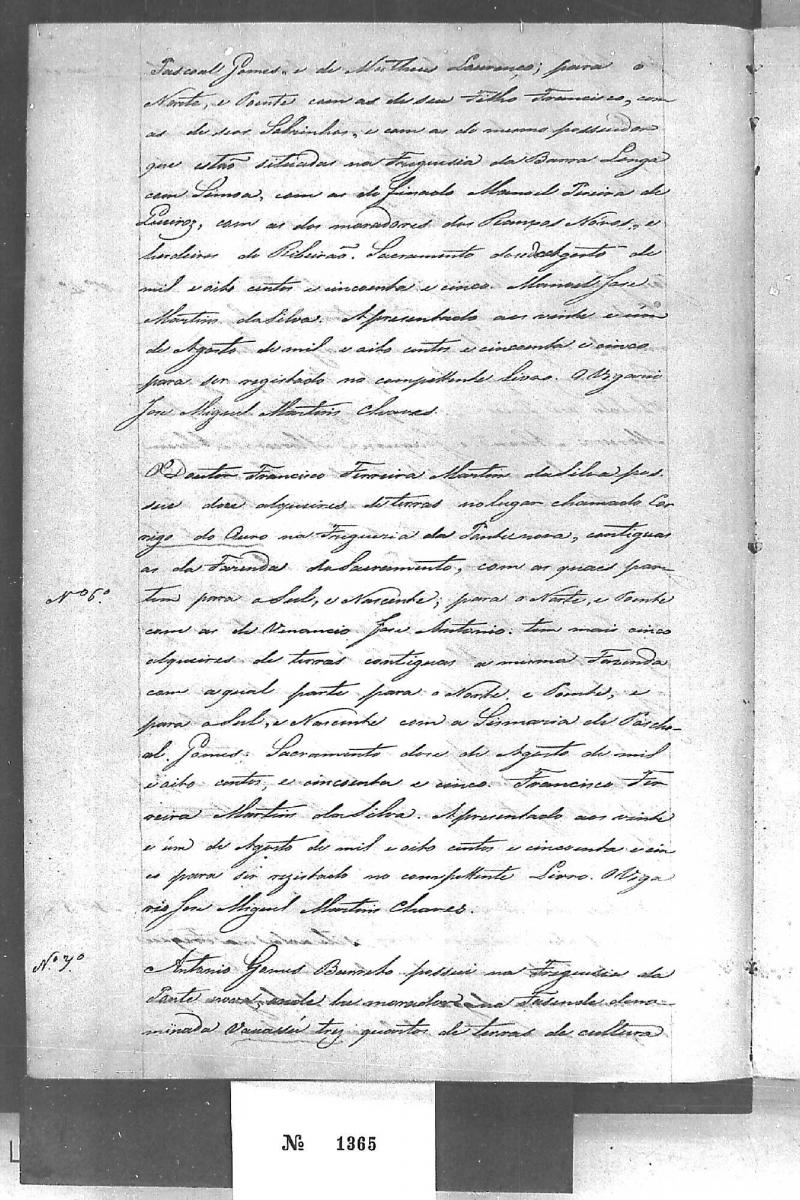 Pascoal Gomes, e de Matheus Lourenço; para o
Norte, e Poente com as de seu Filho Francisco, com
as de seos Sobrinhos, e com as do mesmo possuidor
que estão situadas na Freguesia da Barra Longa
com Lemos, com as do finado Manoel Pereira de
Queiroz, com as dos moradores dos Campos Novos, e
herdeiros do Ribeirão. Sacramento doze de Agosto de
mil e oito centos e cincoenta e cinco. Manoel Jose
Martins da Silva. Apresentado aos vinte e um
de Agosto de mil e oito centos e cincoenta e cinco
para ser registado no compettente Livro. O Vigario
Jose Miguel Martins Chaves.
O Doutor Francisco Ferreira Martins da Silva pos
sue doze alqueires de terras no lugar chamado Cor
rego do Ouro na Freguezia da Ponte nova, contiguas
as da Fazenda do Sacramento, com as quaes par
Nº 6º
tem para o Sul, e Nascente; para o Norte, e Poente
com as de Venancio Jose Antonio: tem mais cinco
alqueires de terras contiguas a mesma Fazenda
com a qual parte para o Norte e Poente, e
para o Sul, e Nascente com a Sismaria de Pascho-
al Gomes: Sacramento doze de Agosto de mil
e oito centos, e cincoenta e cinco. Francisco Fer
reira Martins da Silva. Apresentado aos vinte
e úm de Agosto de mil e oito centos e cincoenta e cin
co para ser registado no compettente Livro. O Viga
rio Jose Miguel Martins Chaves.
Nº 7º
Antonio Gomes Barreto possui na Freguesia da
Ponte nova, onde he morador na Fasenda deno-
minada Vauassú trez quartos de terras de cultura
Nº 1365